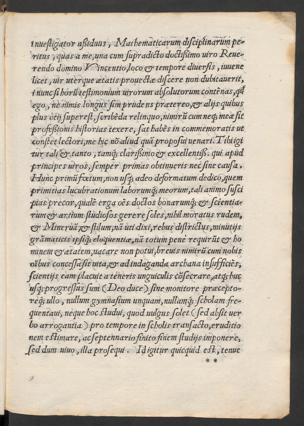 inuestigator assiduus, Mathematicarum disciplinarum pe-
ritus, quas a me, una cum supradicto doctissimo uiro Reue-
rendo domino Vincentio, loco & tempore diuersis, iuuene
licet, uir uterque ætatis prouectæ discere non dubitauerit,
ego, ne nimis longus sim prudens prætereo, & alijs quibus
professionis historias texere, sat habes in commemoratis ut
me hic nõ aliud quã proposui uenari. Igi
tur tali & tanto, tamq; clarissimo & excellentiss. qui apud
principes uiros, semper primas obtinueris nec sine causa.
Hunc primũ fœtum, non usq; adeo deformatum dedico, quem
primitias lucubrationum laborumq; meorum, tali animo susci
ptas precor, qualẽ erga oẽs doctos bonarumq; & scientia-
rum & artium studiosos gerere soles, nihil moratus rudem,
& Mineruã, nã uti dixi, rebus districtus, minutijs
grãmaticis ipsiq; eloquentiæ, nõ totum penè requirũt & ho
minem & ætatem, uacare non potui, breuis nimirũ cum nobis
oĩbus concessa sit uita, & ad indaganda archana insufficiẽs,
scientijs eam placuit a teneris unguiculis cõsecrare, atq; huc
usq; progressus sum (Deo duce) sine monitore præcepto-
req; ullo, nullum gymnasium unquam, nullamq; scholam fre-
quentaui, neque hoc studui, quod uulgus solet (sed absit uer
bo arrogantia) pro tempore in scholis transacto, eruditio
nem estimare, ac septennario finito finem studijs imponere,
sed dum uiuo, illa prosequi. Id igitur quicquid est, tenue